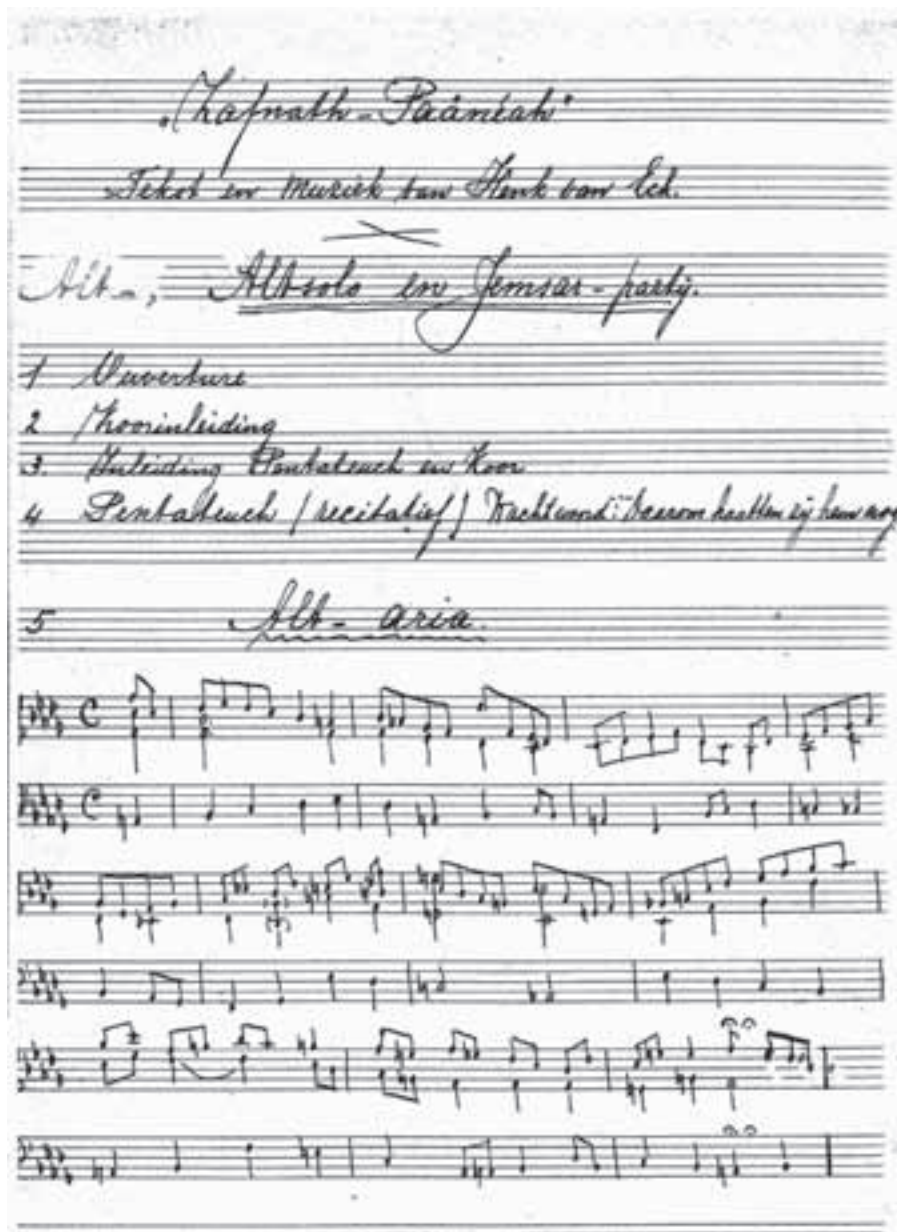 „Zafnath-Paänéah"
Tekst en muziek van Henk van Eck.
Alt-, Altsolo en Jemsar-partij.
1 Ouverture
2 Koorinleiding
3. Inleiding Pentateuch en Koor
4 Pentateuch (recitatief) Wachtwoord: "Daarom haatten zij hem nog
5 Alt-aria.